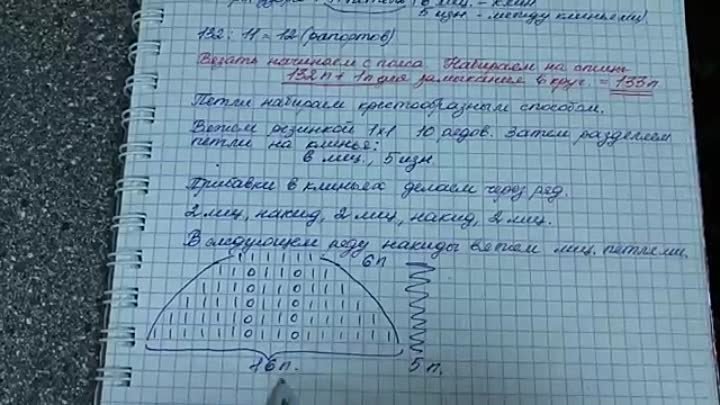 (6 лиц. - клин
5 изн. - между клиньями).
132 : 11 = 12 (рапортов)
Вязать начинаем с пояса. Набираем на спицы
132п + 1п для замыкания в круг. = 133п
Петли набираем крестообразным способом.
Вяжем резинкой 1х1 10 рядов. Затем разделяем
петли на клинья:
6 лиц., 5 изн.
Прибавки в клиньях делаем через ряд.
2 лиц, накид, 2 лиц, накид, 2 лиц.
В следующем ряду накиды вяжем лиц. петлями.
6п
16 п. 5 п.